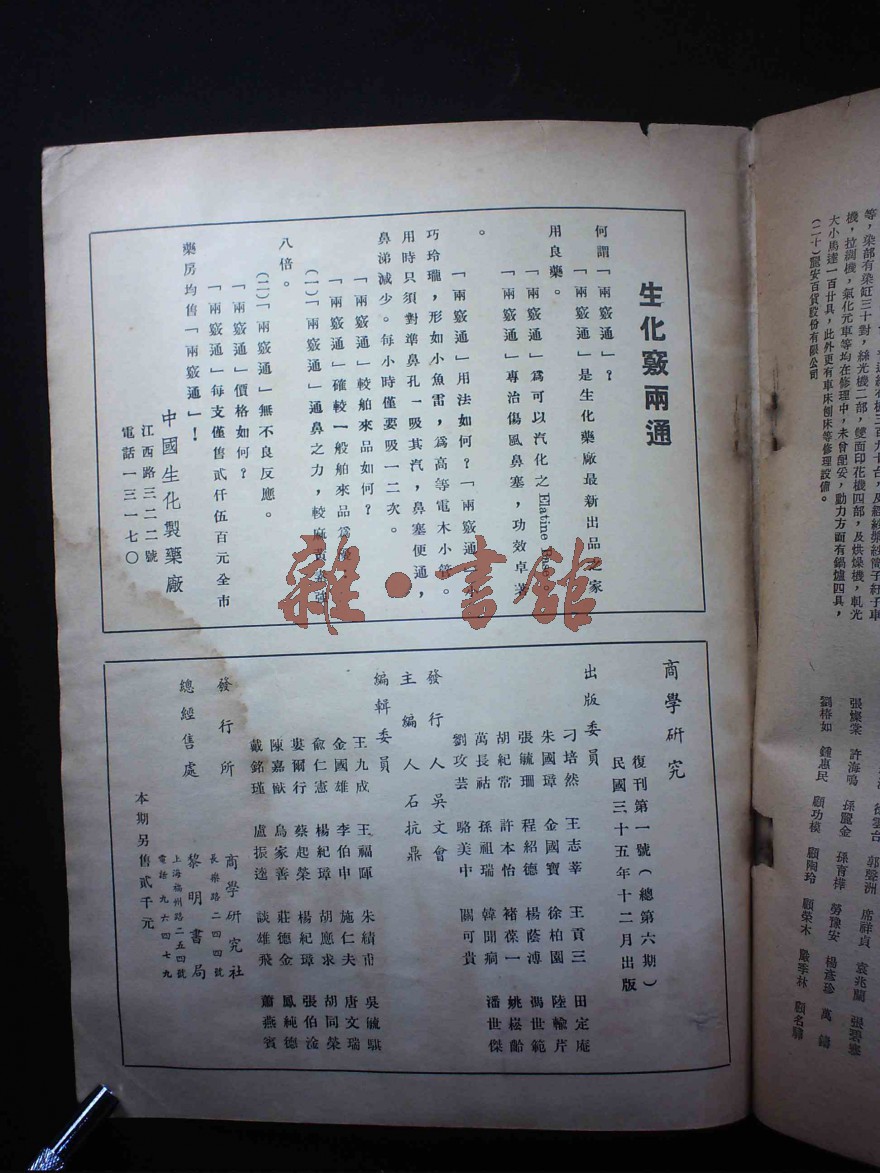 生化竅兩通
何謂「兩竅通」？
「兩竅通」是生化藥廠最新出品之家
用良藥。
「兩竅通」為可以汽化之Elatine
「兩竅通」專治傷風鼻塞，功效卓著
。
「兩竅通」用法如何？「兩竅通」小
巧玲瓏，形如小魚雷，為高等電木小管。
用時只須對準鼻孔一吸其汽，鼻塞便通，
鼻涕減少。每小時僅要吸一二次。
「兩竅通」較舶來品如何？
「兩竅通」確較一般舶來品為
(一)「兩竅通」通鼻之力，較麻黃
八倍。
(二)「兩竅通」無不良反應。
「兩竅通」價格如何？
「兩竅通」每支僅售貳仟伍百元全市
藥房均售「兩竅通」！
中國生化製藥廠
江西路三二二號
電話一三一七〇
商學研究
復刊第一號（總第六期）
民國三十五年十二月出版
出版委員
刁培然 王志莘 王貢三 田定庵
朱國璋 金國寶 徐柏園 陸輸芹
張毓珊 程紹德 楊蔭溥 馮世範
胡紀常 許本怡 褚葆一 姚崧齡
萬長祜 孫祖瑞 韓聞痌 潘世傑
劉攻芸 駱美中 關可貴
發行人 吳文會
主編人 石抗鼎
編輯委員
王九成 王福暉 朱績甫 吳毓騏
金國雄 李伯申 施仁夫 唐文瑞
俞仁憲 楊紀璋 胡應求 胡同榮
婁爾行 蔡起榮 楊紀璋 張伯淦
陳嘉猷 烏家善 莊德金 鳳純德
戴銘瑾 盧振逵 談雄飛 蕭燕賓
發行所 商學研究社
長樂路二四四號
總經售處 黎明書局
上海福州路二五四號
電話九六四七九
本期另售貳千元
染部有染缸三十對，絲光機二部，雙面印花機四部，及烘燥機，軋光
機，拉調機，氣化元車等均在修理中，未曾配妥，動力方面有鍋爐四具，
大小馬達一百廿具，此外更有車床刨床等修理設備。
(二十)麗安百貨股份有限公司
郭聲洲 席祥貞 袁兆蘭 張碧寒
張燦棠 許海鳴 孫麗金 孫育樺 勞豫安 楊彥珍 萬鑄
劉椿如 鍾惠民 顧功模 顧陶玲 顧榮木 嚴季林 顧名驛
雜·書館